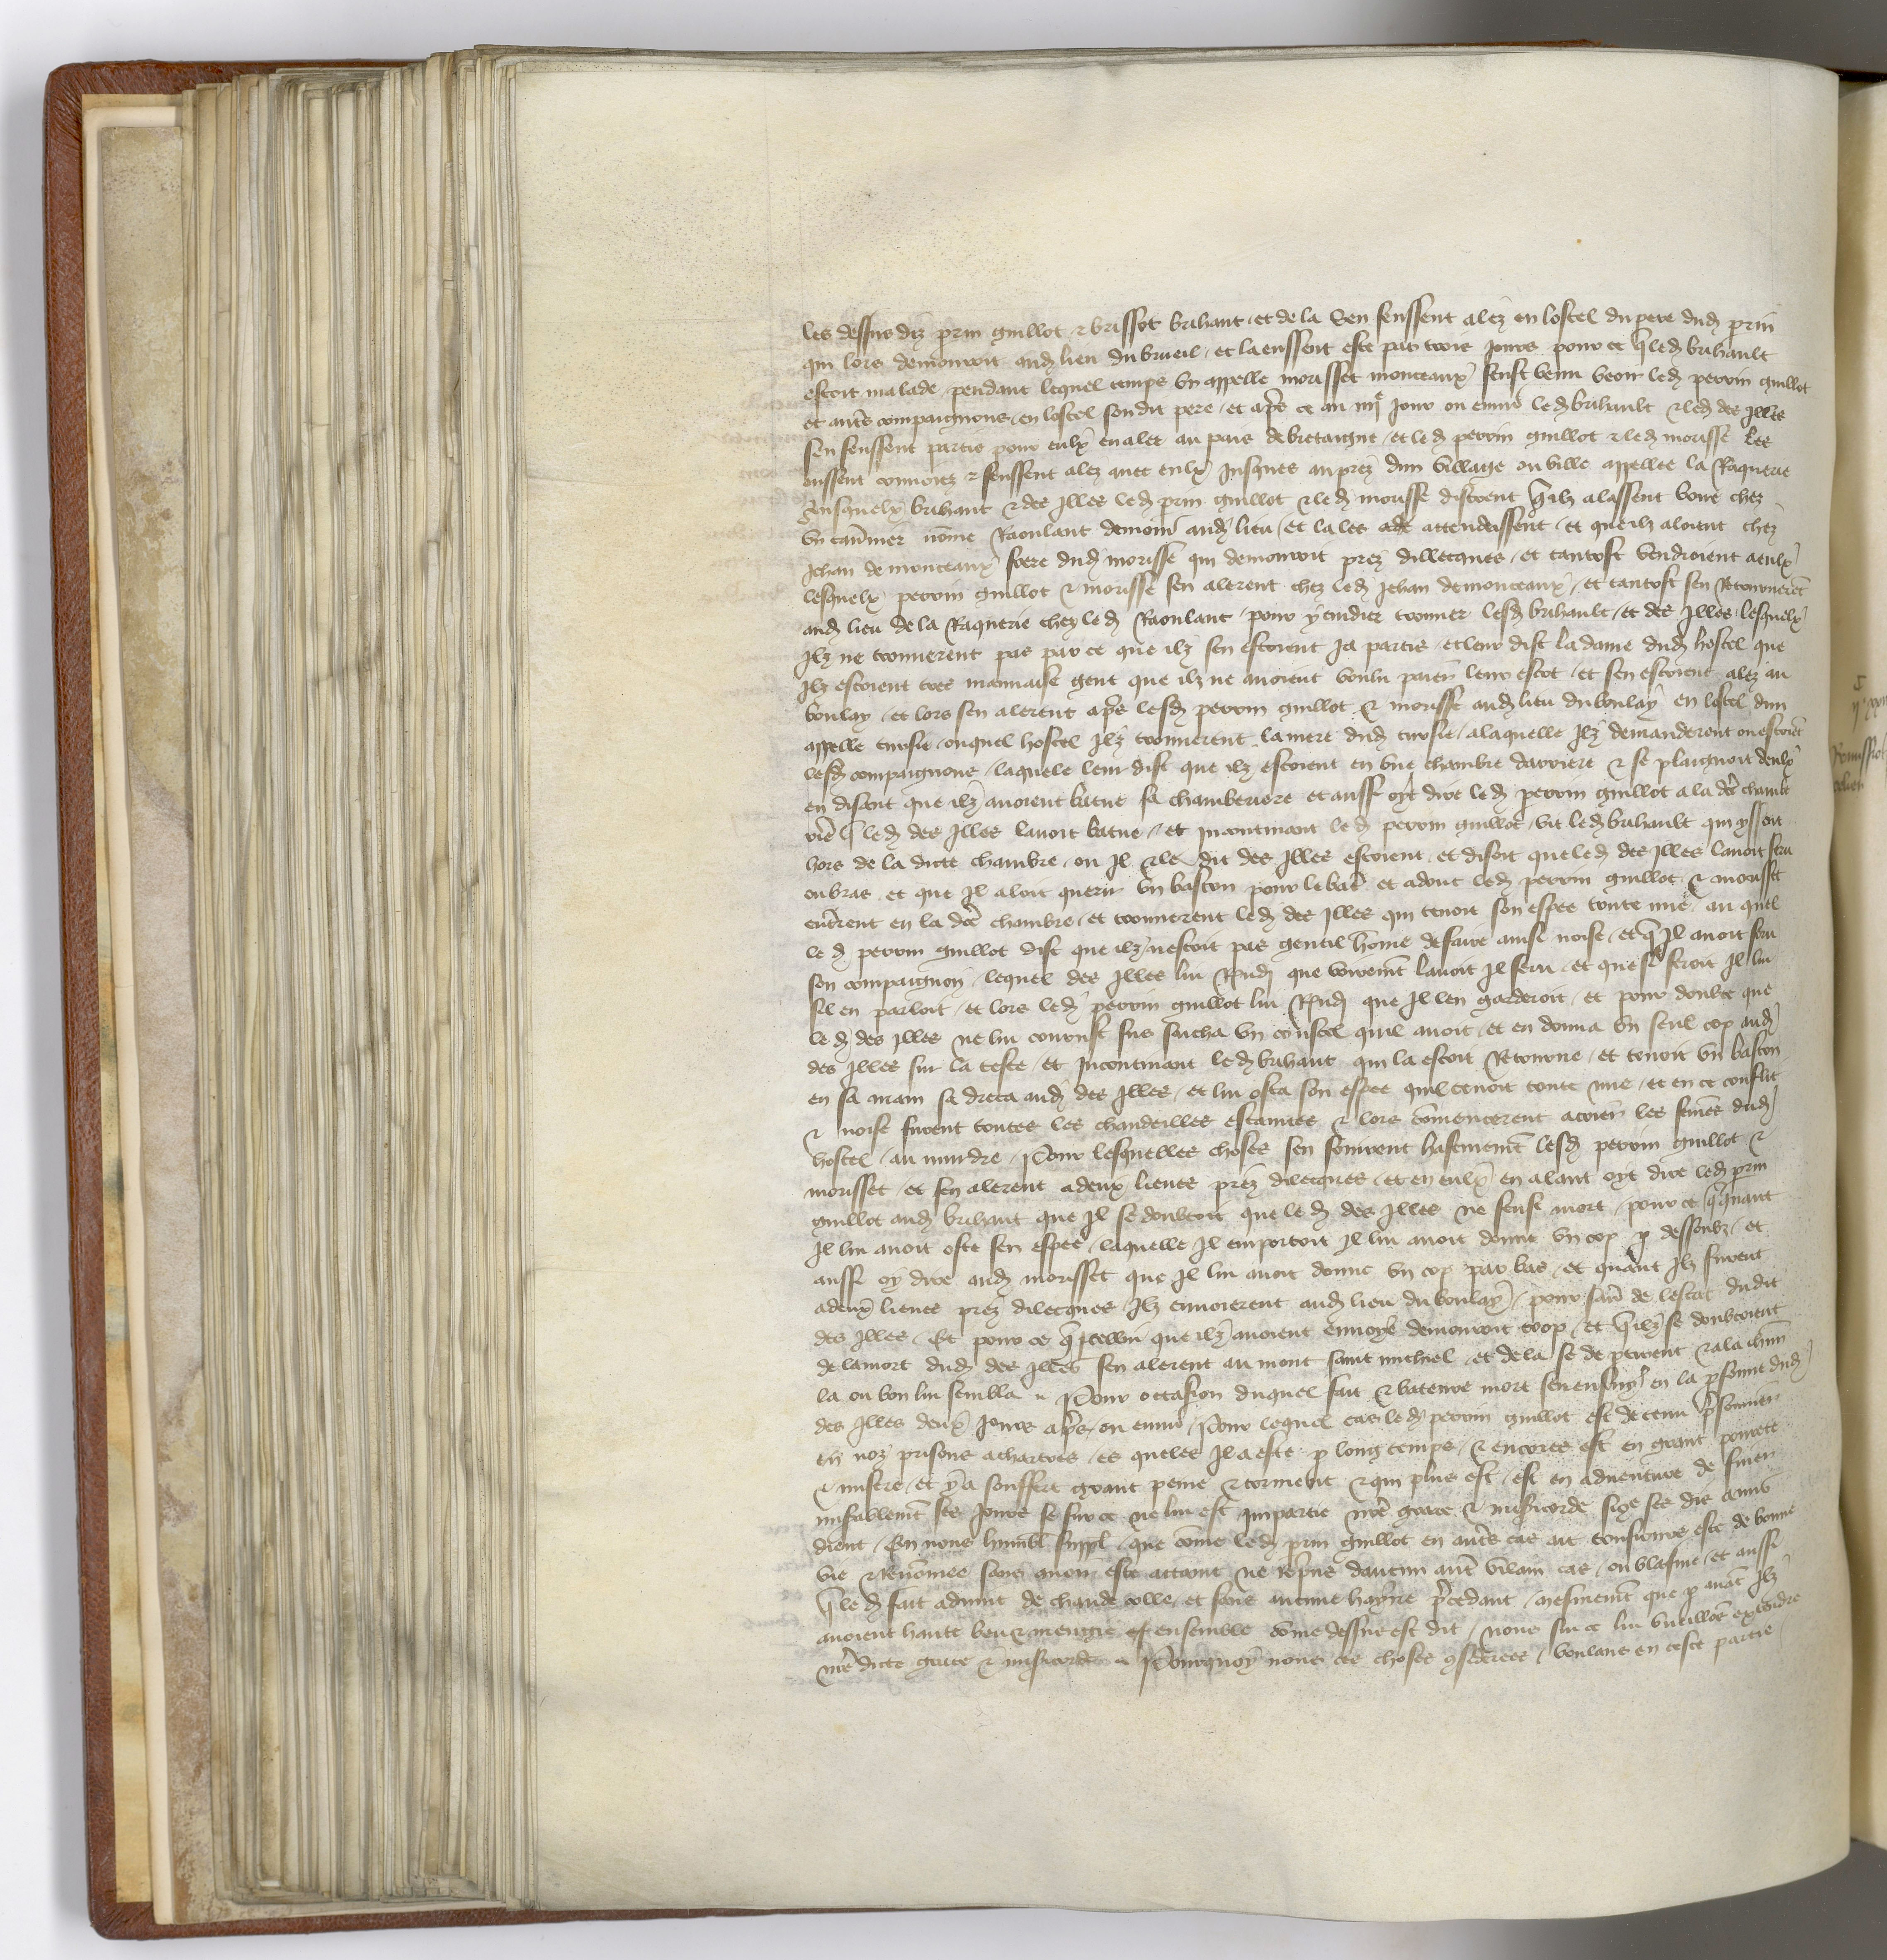 les dessus diz prin guillot & brissot brihaut / et de la sen feussent alez en lostel du pere dud prin
qui lors demouroit aud lieu du brueil / et la eussent este par trois jours pour ce q led brihault
estoit malade / pendant lequel temps un appelle morisset monceaux feust venu veoir led perrin guillot
et autes compaignons / en lostel sondit pere / et apres ce au iiije jour ou enuiro led brihault & led des Jlles
sen feussent partis pour eulx en aler au pais de bretaigne / et led perrin guillot & led morisse les
eussent conuoiez & feussent alez auec eulx jusques auprez dun village ou ville appellee la Raquerie
Ausquelx brihaut & des Jlles led prin guillot & led morisse disrent qilz alassent boire chez
un tauernier nome Raoulant demour aud lieu / et la les attendissent / et que ilz aloient chez
Jehan de monceaux frere dud morisse qui demouroit prez dillecques / et tantost vendroient a eulx
lesquelx perrin guillot & morisse sen alerent chez led Jehan de monceaux / et tantost sen Retournerent
aud lieu de la Raquerie chez led Raoulant / pour y cuidier trouuer lesd brihault / et des Jlles / lesquelx
Jlz ne trouuerent pas par ce que ilz sen estoient ja partis / et leur dist la dame dud hostel que
Jlz estoient tres mauuaise gent que ilz ne auoient voulu paier leur escot / et sen estoient alez au
boulay / et lors sen alerent apres lesd perrin guillot & morisse aud lieu du boulay en lostel dun
appelle cursie / ouquel hostel Jlz trouuerent la mere dud cursie / a laquelle Jlz demanderent ou estoient
lesd compaignons / laquele leur dist que ilz estoient en une chambre darriere & se plaignoit deulx
en disant que ilz auoient batue sa chamberiere et aussi oyt dire led perrin guillot a la dce chambe
riere q led des Jlles lauoit batue / et Jncontinant led perrin guillot vit led brihault qui yssoit
hors de la dicte chambre / ou Jl & le dit des Jlles estoient / et disoit que led des Jlles lauoit feru
ou bras / et que Jl aloit querir un baston pour le batre / et adonc led perrin guillot & morisset
entrerent en la dce chambre / et trouuerent led des Jlles qui tenoit son espee toute nue / au quel
led perrin guillot dist que ilz nestoit pas gentil home de faire ainsi noise / et q Jl auoit feru
son compaignon / lequel des Jlles lui Rndi que voirement lauoit Jl feru / et que si feroit Jl lui
sil en parloit / et lors led perrin guillot lui Rndi que Jl len garderoit / et pour doubte que
led des Jlles ne lui courust sus sacha un coustel quil auoit / et en donna un seul cop aud
des Jlles sur la teste / et Jncontinant led brihaut qui la estoit Retourne / et tenoit un baston
en sa main sadreca aud des Jlles / et lui osta son espee quil tenoit toute nue / et en ce conflit
& noise furent toutes les chandeilles estaintes & lors comencerent a crier les femes dud
hostel / au murdre / Pour lesquelles choses sen fouirent hastiuement lesd perrin guillot &
morisset / et sen alerent a deux lieues prez dilecques / et en eulx en alant oyt dire led prin
guillot aud brihaut que Jl se doubtoit que led des Jlles ne feust mort / pour ce q quant
Jl lui auoit oste sen espee / laquelle Jl emportoit Jl lui auoit donne un cop p dessoubz / et
aussi oy dire aud morisset que Jl lui auoit donne un cop par bas / et quant Jlz furent
a deux lieues prez dilecques Jlz enuoierent aud lieu du boulay / pour sauoir de lestat dudit
des Jlles / Et pour ce q jcellui que ilz auoient enuoye demouroit trop / et qilz se doubtoient
de la mort dud des Jlles sen alerent au mont saint michiel / et de la se departirent & ala chun
la ou bon lui sembla Pour occasion duquel fait & bateure mort sen ensuy en la psonne dud
des Jlles deux jours apres / ou enuiro / Pour lequel cas led perrin guillot est detenu prisonnier
en noz prisons a chartres / es queles Jl a este p long temps / & encores est en grant pourete
& misere / et y a souffert grant peine & torment & qui plus est / est en aduenture de finer
misablement ses jours se sur ce ne lui est Jmpartie nre grace & misericorde si ce ses dis amis
dient / En nous humbl suppl / que come led prin guillot en autres cas ait tousiours este de bonne
vie & Renomee sans auoir este attaint ne Repris dautun autre vilain cas / ou blasme / et aussi
q led fait aduint de chaude colle / et sans aucune hayne precedant / mesmement que p auat Jlz
auoient hante beu & mengie ensemble come dessus est dit / nous sur ce lui vueillons extendre
nre dicte grace & misericorde Pourquoy nous ces choses considerees / voulans en ceste partie